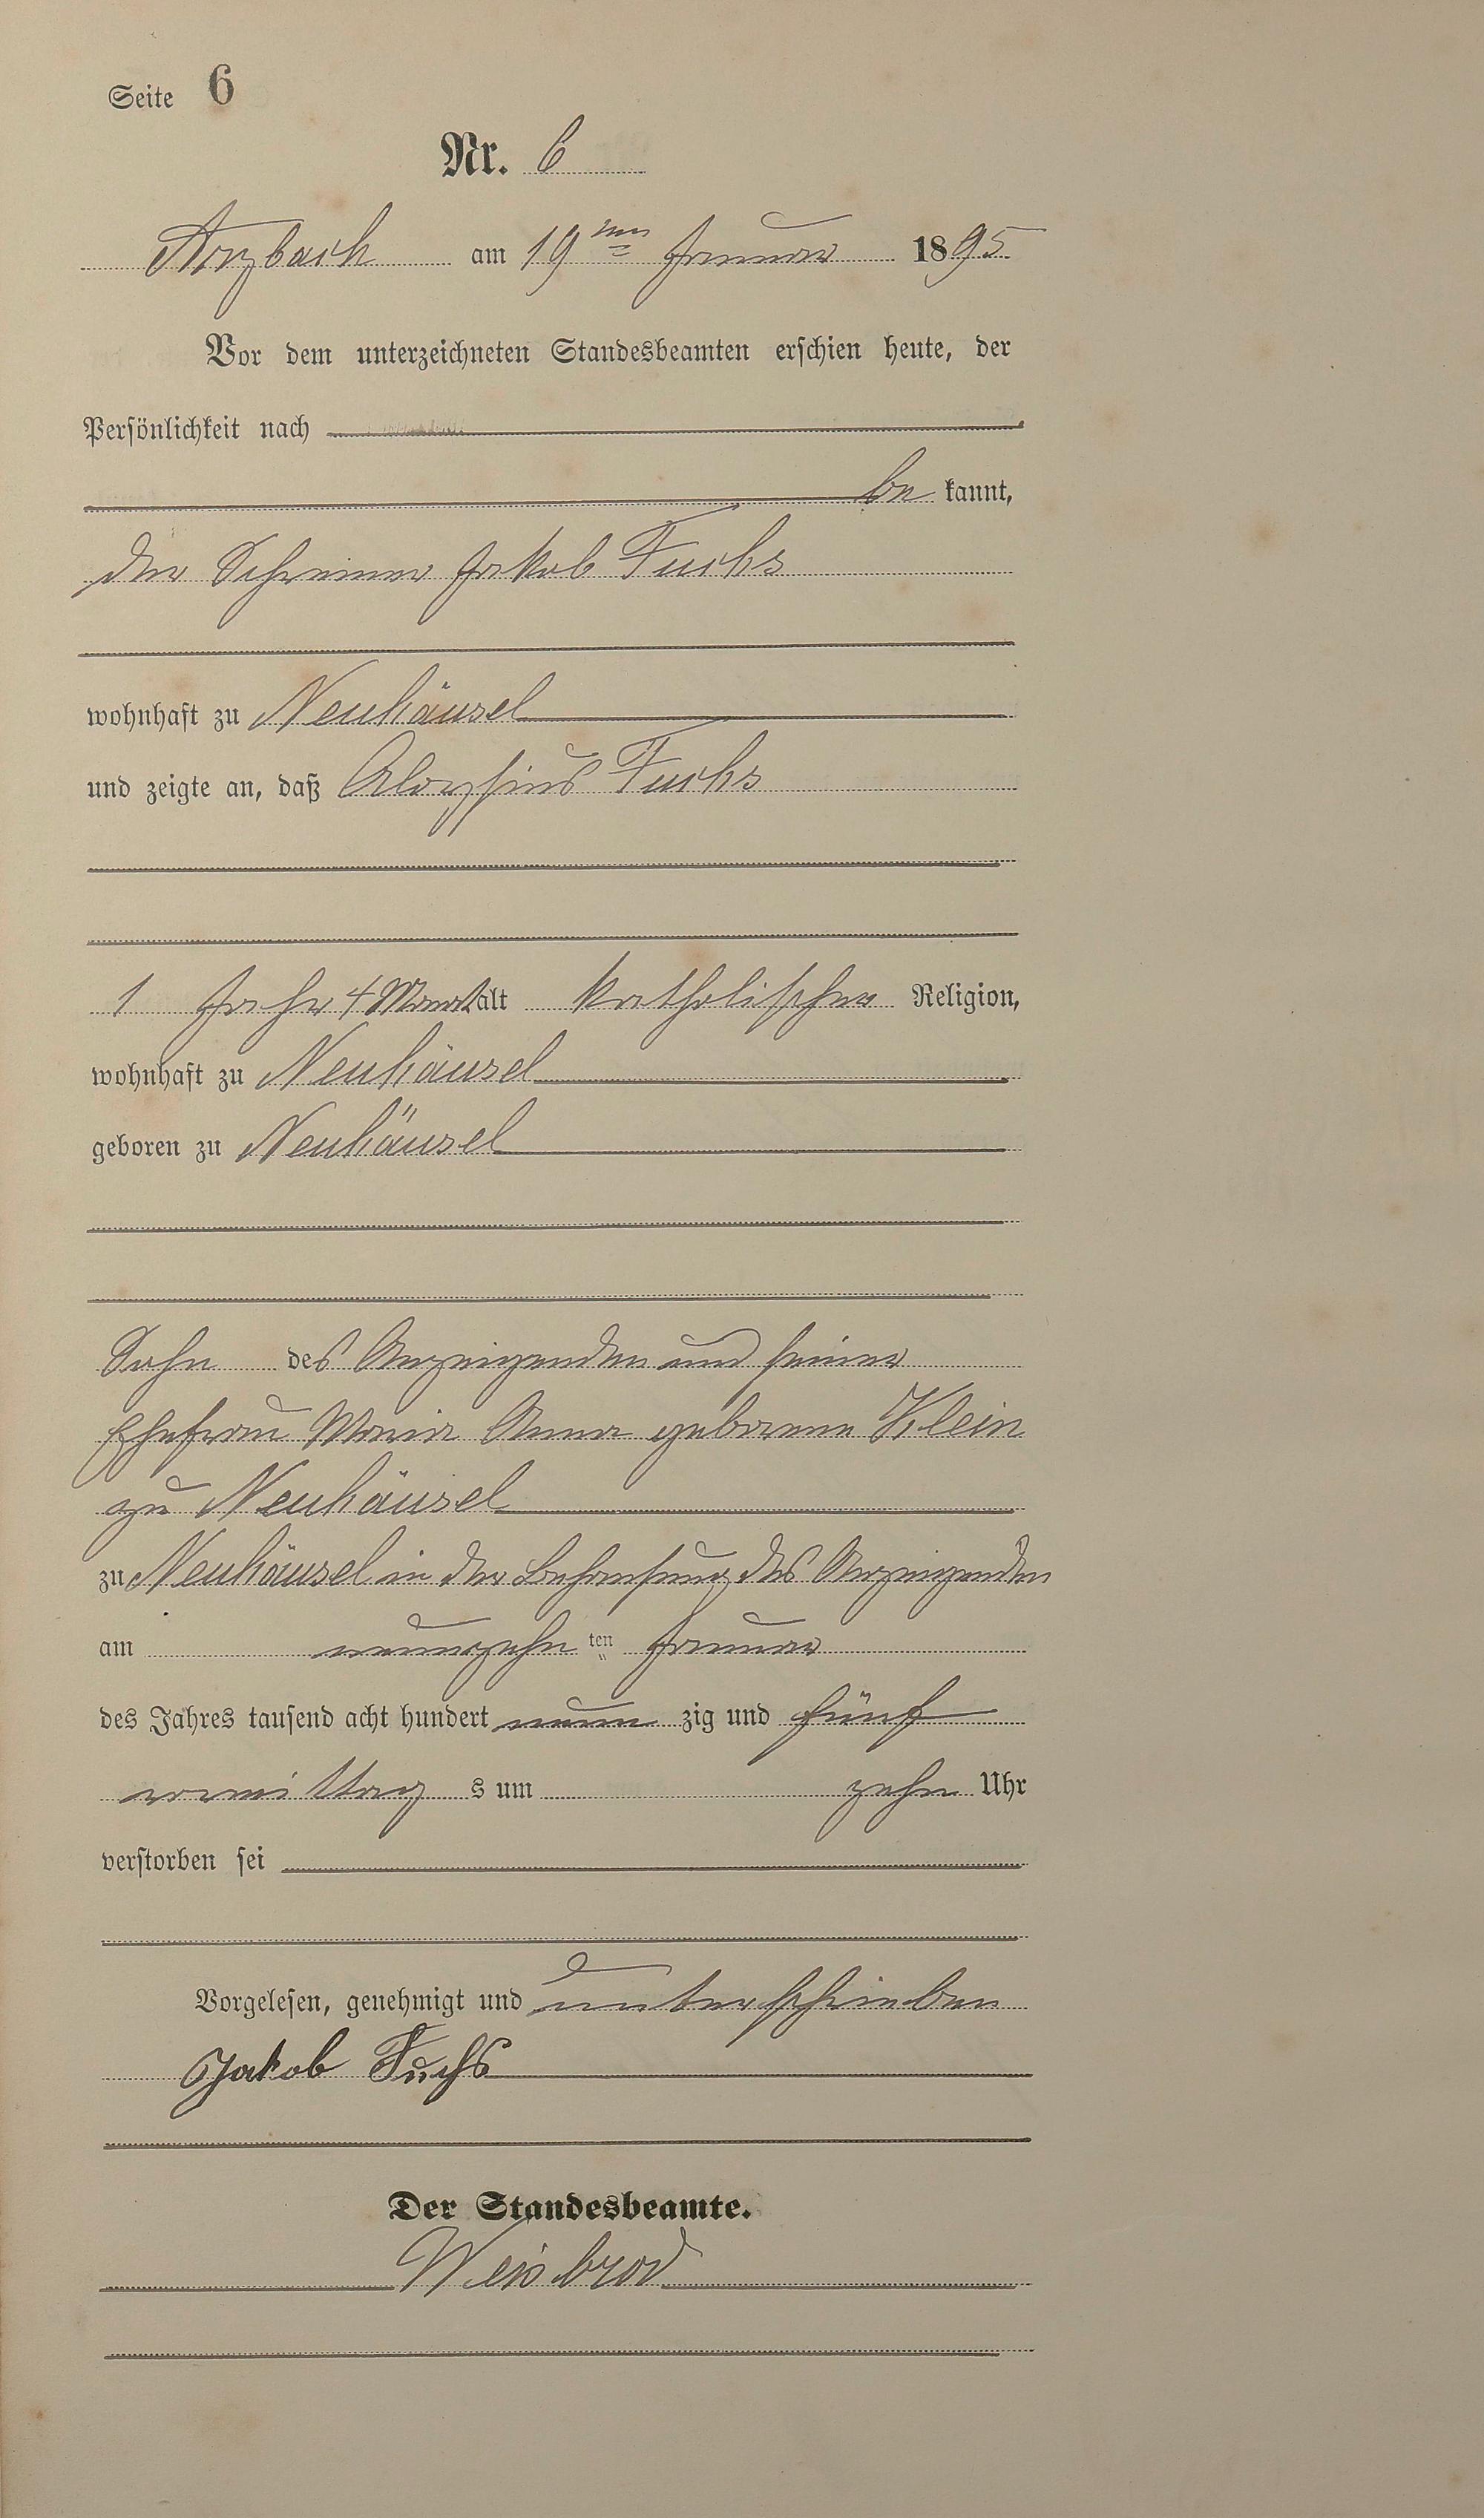 Seite 6
Nr. 6
Arzbach am 19ten Januar 1895.
Vor dem unterzeichneten Standesbeamten erschien heute, der
Persönlichkeit nach
be kannt,
der Schreiner Jakob Fuchs
wohnhaft zu Neuhäusel
und zeigte an, daß Aloysius Fuchs
1 Jahr 4 Monat alt katholischer Religion,
wohnhaft zu Neuhäusel
geboren zu Neuhäusel
Sohn des Anzeigenden und seiner
Ehefrau Maria Anna geborene Klein
zu Neuhäusel
zu Neuhäusel in der Behausung des Anzeigenden
am neunzehn ten Januar
des Jahres tausend acht hundert neun zig und fünf
vormittag s um zehn Uhr
verstorben sei
Vorgelesen, genehmigt und unterschrieben
Jakob Fuchs
Der Standesbeamte.
Weisbrod